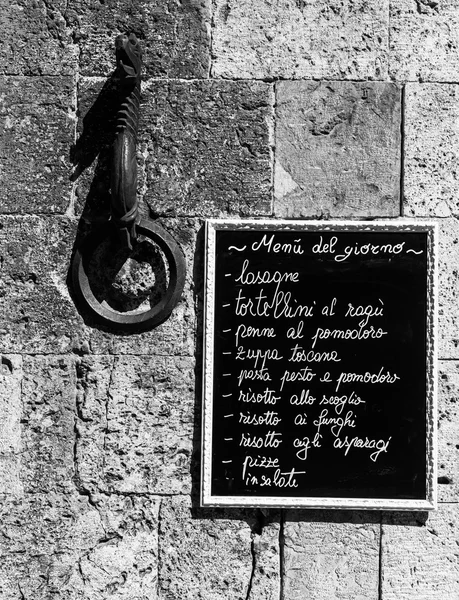 ~ Menù del giorno ~
- lasagne
- tortellini al ragù
- penne al pomodoro
- zuppa toscana
- pasta pesto e pomodoro
- risotto allo scoglio
- risotto ai funghi
- risotto agli asparagi
- pizze
- insalate